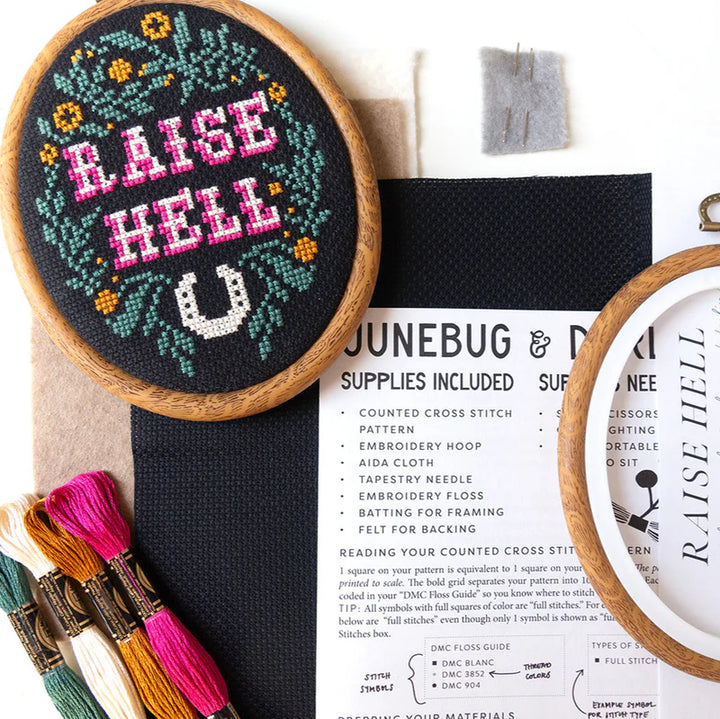 RAISE
HELL
JUNEBUG &
SUPPLIES INCLUDED
• COUNTED CROSS STITCH
PATTERN
• EMBROIDERY HOOP
• AIDA CLOTH
• TAPESTRY NEEDLE
• EMBROIDERY FLOSS
• BATTING FOR FRAMING
• FELT FOR BACKING
TO SIT
RAISE HELL
READING YOUR COUNTED CROSS STITCH
1 square on your pattern is equivalent to 1 square on your
printed to scale. The bold grid separates your pattern into
coded in your "DMC Floss Guide" so you know where to stitch
TIP: All symbols with full squares of color are "full stitches." For
below are "full stitches" even though only 1 symbol is shown as
Stitches box.
DMC FLOSS GUIDE
■ DMC BLANC
DMC 3852
● DMC 904
STITCH
SYMBOLS
THREAD
COLORS
TYPES OF
■ FULL STITCH
EXAMPLE SYMBOL
FOR STITCH TYPE
PREPPING YOUR MATERIALS